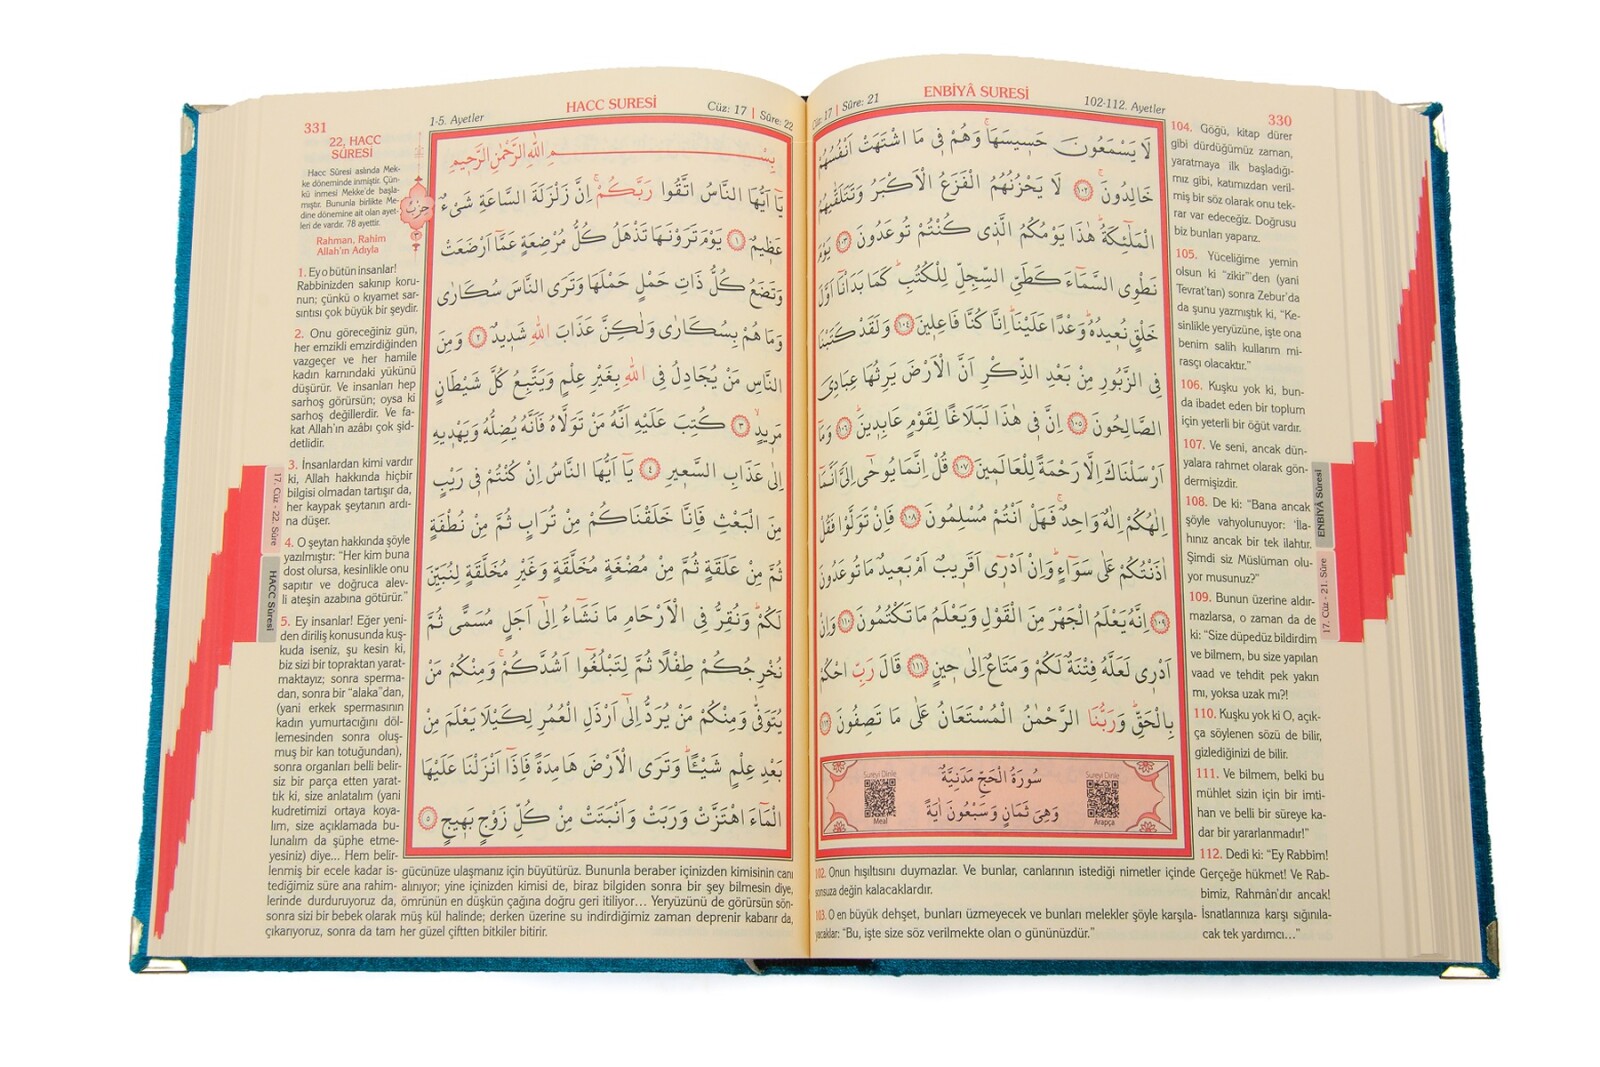 330
ENBİYÂ SURESİ
Cüz: 17 | Sûre: 21
102-112. Ayetler
لَا يَسْمَعُونَ حَسِيسَهَاۚ وَهُمْ فِي مَا اشْتَهَتْ اَنْفُسُهُمْ
خَالِدُونَۚ ﴿١٠٢﴾ لَا يَحْزُنُهُمُ الْفَزَعُ الْاَكْبَرُ وَتَتَلَقّٰيهُمُ
الْمَلٰٓئِكَةُۜ هٰذَا يَوْمُكُمُ الَّذٖي كُنْتُمْ تُوعَدُونَ ﴿١٠٣﴾ يَوْمَ
نَطْوِي السَّمَٓاءَ كَطَيِّ السِّجِلِّ لِلْكُتُبِۜ كَمَا بَدَأْنَٓا اَوَّلَ
خَلْقٍ نُعٖيدُهُۜ وَعْدًا عَلَيْنَاۜ اِنَّا كُنَّا فَاعِلٖينَ ﴿١٠٤﴾ وَلَقَدْ كَتَبْنَا
فِي الزَّبُورِ مِنْ بَعْدِ الذِّكْرِ اَنَّ الْاَرْضَ يَرِثُهَا عِبَادِيَ
الصَّالِحُونَ ﴿١٠٥﴾ اِنَّ فٖي هٰذَا لَبَلَاغًا لِقَوْمٍ عَابِدٖينَۜ ﴿١٠٦﴾ وَمَٓا
اَرْسَلْنَاكَ اِلَّا رَحْمَةً لِلْعَالَمٖينَ ﴿١٠٧﴾ قُلْ اِنَّمَا يُوحٰٓى اِلَيَّ اَنَّمَٓا
اِلٰهُكُمْ اِلٰهٌ وَاحِدٌۚ فَهَلْ اَنْتُمْ مُسْلِمُونَ ﴿١٠٨﴾ فَاِنْ تَوَلَّوْا فَقُلْ
اٰذَنْتُكُمْ عَلٰى سَوَٓاءٍۜ وَاِنْ اَدْرٖٓي اَقَرٖيبٌ اَمْ بَعٖيدٌ مَا تُوعَدُونَ
﴿١٠٩﴾ اِنَّهُ يَعْلَمُ الْجَهْرَ مِنَ الْقَوْلِ وَيَعْلَمُ مَا تَكْتُمُونَ ﴿١١٠﴾ وَاِنْ
اَدْرٖي لَعَلَّهُ فِتْنَةٌ لَكُمْ وَمَتَاعٌ اِلٰى حٖينٍ ﴿١١١﴾ قَالَ رَبِّ احْكُمْ
بِالْحَقِّۜ وَرَبُّنَا الرَّحْمٰنُ الْمُسْتَعَانُ عَلٰى مَا تَصِفُونَ ﴿١١٢﴾
سُورَةُ الْحَجِّ مَدَنِيَّةٌ
وَهِيَ ثَمَانٍ وَسَبْعُونَ اٰيَةً
Sureyi Dinle
Arapça
Sureyi Dinle
Meal
102. Onun hışıltısını duymazlar. Ve bunlar, canlarının istediği nimetler içinde
sonsuza değin kalacaklardır.
103. O en büyük dehşet, bunları üzmeyecek ve bunları melekler şöyle karşıla-
yacaklar: “Bu, işte size söz verilmekte olan o gününüzdür.”
104. Göğü, kitap dürer
gibi dürdüğümüz zaman,
yaratmaya ilk başladığı-
mız gibi, katımızdan veril-
miş bir söz olarak onu tek-
rar var edeceğiz. Doğrusu
biz bunları yaparız.
105. Yüceliğime yemin
olsun ki “zikir”den (yani
Tevrat'tan) sonra Zebur'da
da şunu yazmıştık ki, “Ke-
sinlikle yeryüzüne, işte ona
benim salih kullarım mi-
rasçı olacaktır.”
106. Kuşku yok ki, bun-
da ibadet eden bir toplum
için yeterli bir öğüt vardır.
107. Ve seni, ancak dün-
yalara rahmet olarak gön-
dermişizdir.
108. De ki: “Bana ancak
şöyle vahyolunuyor: ‘İla-
hınız ancak bir tek ilahtır.
Şimdi siz Müslüman olu-
yor musunuz?”
109. Bunun üzerine aldır-
mazlarsa, o zaman da de
ki: “Size düpedüz bildirdim
ve bilmem, bu size yapılan
vaad ve tehdit pek yakın
mı, yoksa uzak mı?!
110. Kuşku yok ki O, açık-
ça söylenen sözü de bilir,
gizlediğinizi de bilir.
111. Ve bilmem, belki bu
mühlet sizin için bir imti-
han ve belli bir süreye ka-
dar bir yararlanmadır!”
112. Dedi ki: “Ey Rabbim!
Gerçeğe hükmet! Ve Rab-
bimiz, Rahmân'dır ancak!
İsnatlarınıza karşı sığınıla-
cak tek yardımcı...”
ENBİYÂ Sûresi
17. Cüz - 21. Sûre
331
HACC SURESİ
Cüz: 17 | Sûre: 22
1-5. Ayetler
بِسْمِ اللّٰهِ الرَّحْمٰنِ الرَّحٖيمِ
يَٓا اَيُّهَا النَّاسُ اتَّقُوا رَبَّكُمْۚ اِنَّ زَلْزَلَةَ السَّاعَةِ شَيْءٌ
عَظٖيمٌ ﴿١﴾ يَوْمَ تَرَوْنَهَا تَذْهَلُ كُلُّ مُرْضِعَةٍ عَمَّٓا اَرْضَعَتْ
وَتَضَعُ كُلُّ ذَاتِ حَمْلٍ حَمْلَهَا وَتَرَى النَّاسَ سُكَارٰى
وَمَا هُمْ بِسُكَارٰى وَلٰكِنَّ عَذَابَ اللّٰهِ شَدٖيدٌ ﴿٢﴾ وَمِنَ
النَّاسِ مَنْ يُجَادِلُ فِي اللّٰهِ بِغَيْرِ عِلْمٍ وَيَتَّبِعُ كُلَّ شَيْطَانٍ
مَرٖيدٍۙ ﴿٣﴾ كُتِبَ عَلَيْهِ اَنَّهُ مَنْ تَوَلَّاهُ فَاَنَّهُ يُضِلُّهُ وَيَهْدٖيهِ
اِلٰى عَذَابِ السَّعٖيرِ ﴿٤﴾ يَٓا اَيُّهَا النَّاسُ اِنْ كُنْتُمْ فٖي رَيْبٍ
مِنَ الْبَعْثِ فَاِنَّا خَلَقْنَاكُمْ مِنْ تُرَابٍ ثُمَّ مِنْ نُطْفَةٍ
ثُمَّ مِنْ عَلَقَةٍ ثُمَّ مِنْ مُضْغَةٍ مُخَلَّقَةٍ وَغَيْرِ مُخَلَّقَةٍ لِنُبَيِّنَ
لَكُمْۜ وَنُقِرُّ فِي الْاَرْحَامِ مَا نَشَٓاءُ اِلٰٓى اَجَلٍ مُسَمًّى ثُمَّ
نُخْرِجُكُمْ طِفْلًا ثُمَّ لِتَبْلُغُٓوا اَشُدَّكُمْۚ وَمِنْكُمْ مَنْ
يُتَوَفّٰى وَمِنْكُمْ مَنْ يُرَدُّ اِلٰٓى اَرْذَلِ الْعُمُرِ لِكَيْلَا يَعْلَمَ مِنْ
بَعْدِ عِلْمٍ شَيْـًٔاۜ وَتَرَى الْاَرْضَ هَامِدَةً فَاِذَٓا اَنْزَلْنَا عَلَيْهَا
الْمَٓاءَ اهْتَزَّتْ وَرَبَتْ وَاَنْبَتَتْ مِنْ كُلِّ زَوْجٍ بَهٖيجٍ ﴿٥﴾
حزب
22. HACC
SÛRESİ
Hacc Sûresi aslında Mek-
ke döneminde inmiştir. Çün-
kü inmesi Mekke'de başla-
mıştır. Bununla birlikte Me-
dine dönemine ait olan ayet-
leri de vardır. 78 ayettir.
Rahman, Rahim
Allah'ın Adıyla
1. Ey o bütün insanlar!
Rabbinizden sakınıp koru-
nun; çünkü o kıyamet sar-
sıntısı çok büyük bir şeydir.
2. Onu göreceğiniz gün,
her emzikli emzirdiğinden
vazgeçer ve her hamile
kadın karnındaki yükünü
düşürür. Ve insanları hep
sarhoş görürsün; oysa ki
sarhoş değillerdir. Ve fa-
kat Allah'ın azâbı çok şid-
detlidir.
3. İnsanlardan kimi vardır
ki, Allah hakkında hiçbir
bilgisi olmadan tartışır da,
her kaypak şeytanın ardı-
na düşer.
4. O şeytan hakkında şöyle
yazılmıştır: “Her kim buna
dost olursa, kesinlikle onu
sapıtır ve doğruca alev-
li ateşin azabına götürür.”
5. Ey insanlar! Eğer yeni-
den diriliş konusunda kuş-
kuda iseniz, şu kesin ki,
biz sizi bir topraktan yarat-
maktayız; sonra sperma-
dan, sonra bir “alaka”dan,
(yani erkek spermasının
kadın yumurtacığını döl-
lemesinden sonra oluş-
muş bir kan totuğundan),
sonra organları belli belir-
siz bir parça etten yarat-
tık ki, size anlatalım (yani
kudretimizi ortaya koya-
lım, size açıklamada bu-
lunalım da şüphe etme-
yesiniz) diye... Hem belir-
lenmiş bir ecele kadar is-
tediğimiz süre ana rahim-
lerinde durduruyoruz da,
sonra sizi bir bebek olarak
çıkarıyoruz, sonra da tam
gücünüze ulaşmanız için büyütürüz. Bununla beraber içinizden kimisinin canı
alınıyor; yine içinizden kimisi de, biraz bilgiden sonra bir şey bilmesin diye,
ömrünün en düşkün çağına doğru geri itiliyor... Yeryüzünü de görürsün sön-
müş kül halinde; derken üzerine su indirdiğimiz zaman deprenir kabarır da,
her güzel çiftten bitkiler bitirir.
17. Cüz - 22. Sûre
HACC Sûresi